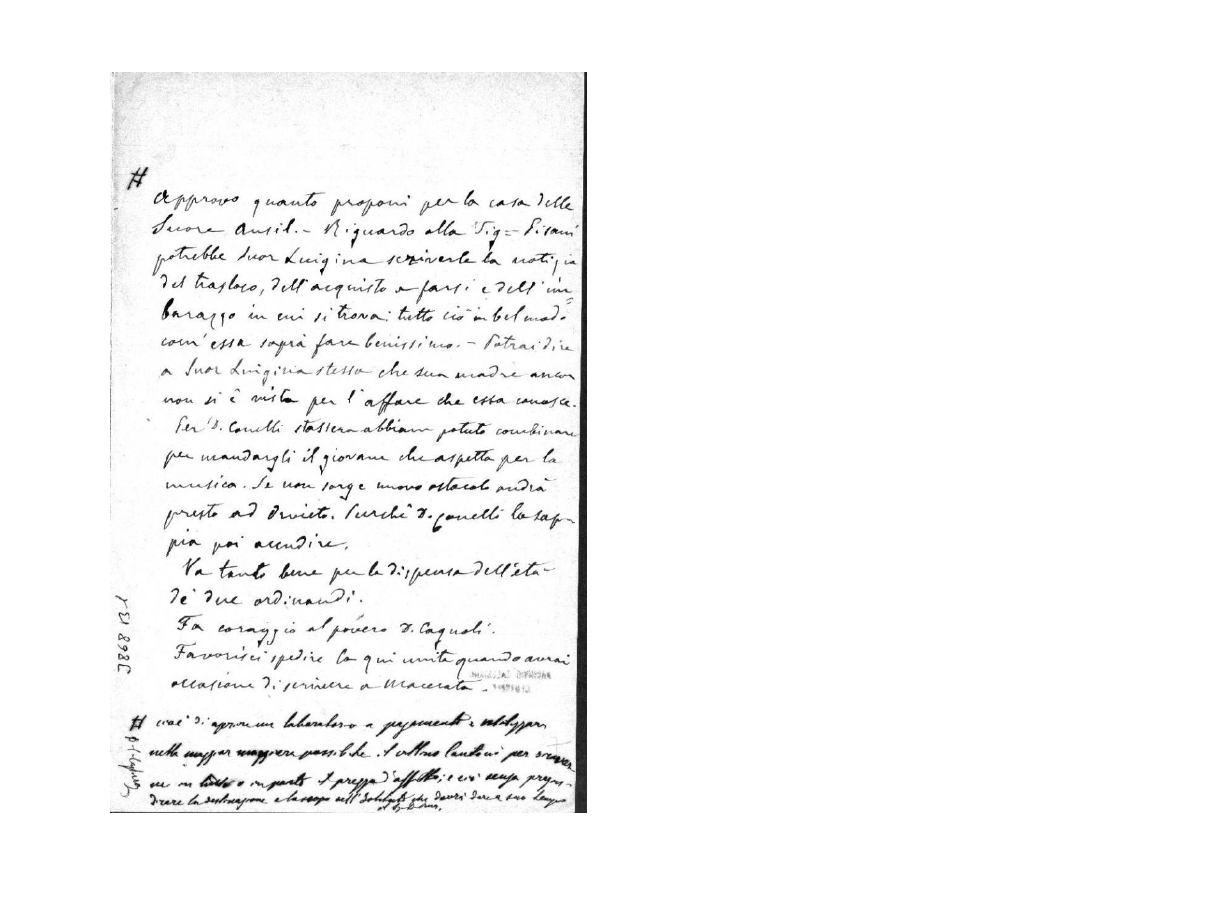 #
Approvo quanto proponi per la casa delle
Suore Ausil. - Riguardo alla Sig= Pisani
potrebbe Suor Luigina scriverle la notizia
del trasloco, dell'acquisto a farsi e dell'im=
barazzo in cui si trova: tutto ciò in bel modo
com'essa saprà fare benissimo. - Potrai dire
a Suor Luigina stessa che sua madre ancor
non si è vista per l'affare che essa conosce.
Per D. Canelli stassera abbiam potuto combinare
per mandargli il giovane che aspetta per la
musica. Se non sorge nuovo ostacolo andrà
presto ad Orvieto. Purchè D. Canelli lo sap-
pia poi accudire.
Va tanto bene per la dispensa dell'età
de' due ordinandi.
Fa coraggio al povero D. Cagnoli.
Favorisci spedire la qui unita quando avrai
occasione di scrivere a Macerata.
# cioè di aprire un laboratorio a pagamento e
nella maggior maggiore possibile per
in tutto o in parte il prezzo d'affitto; e ciò senza pregiu-
dicare la destinazione e lo scopo dell' che dovrà dare a suo tempo